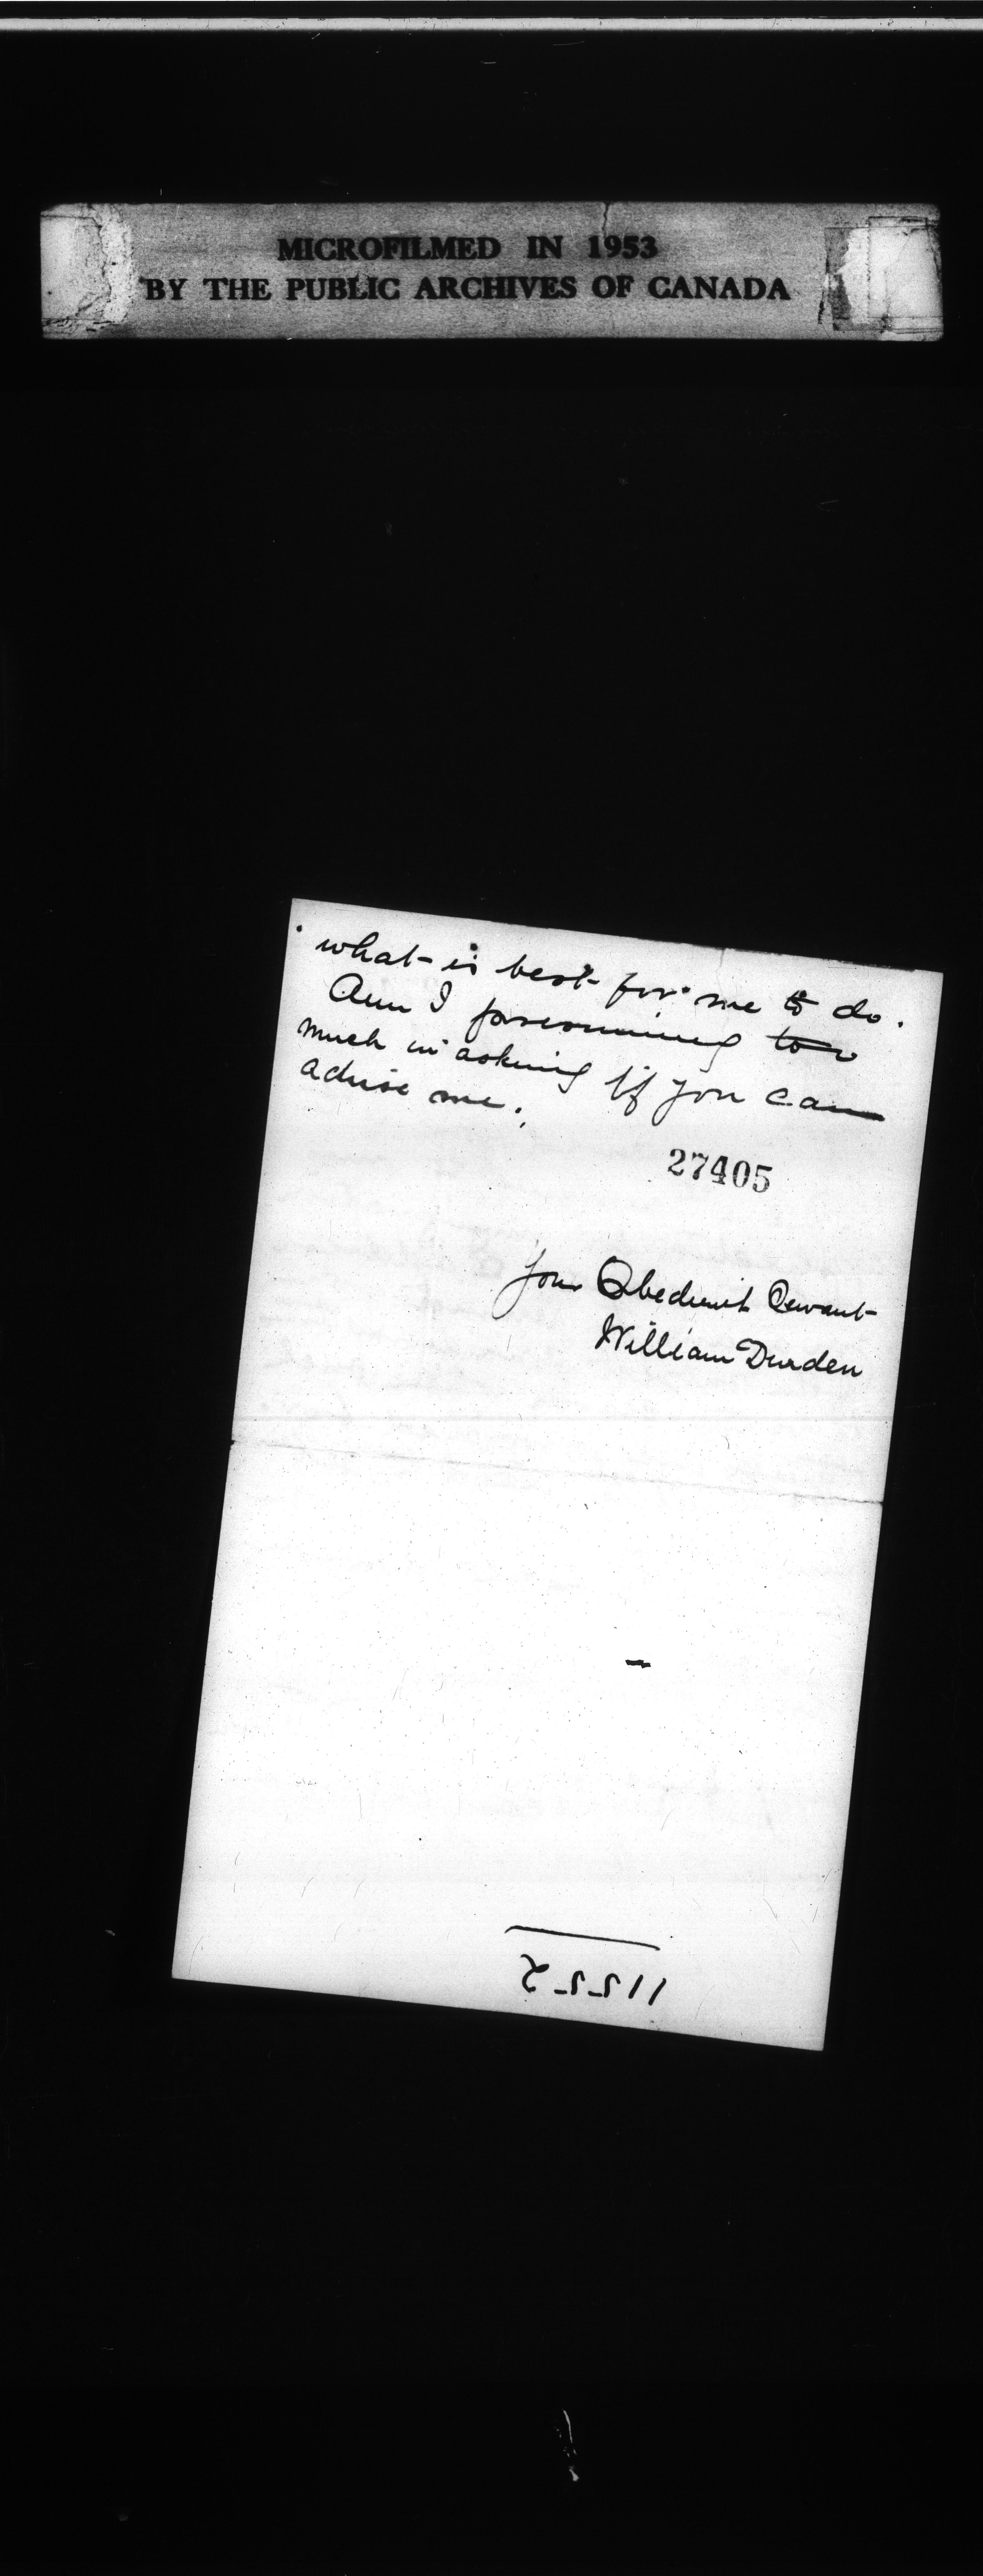 MICROFILMED IN 1953
BY THE PUBLIC ARCHIVES OF CANADA
what is best for me to do.
Am I presuming too
much in asking if you can
advise me.
27405
Your Obedient Servant
William Durden
11552